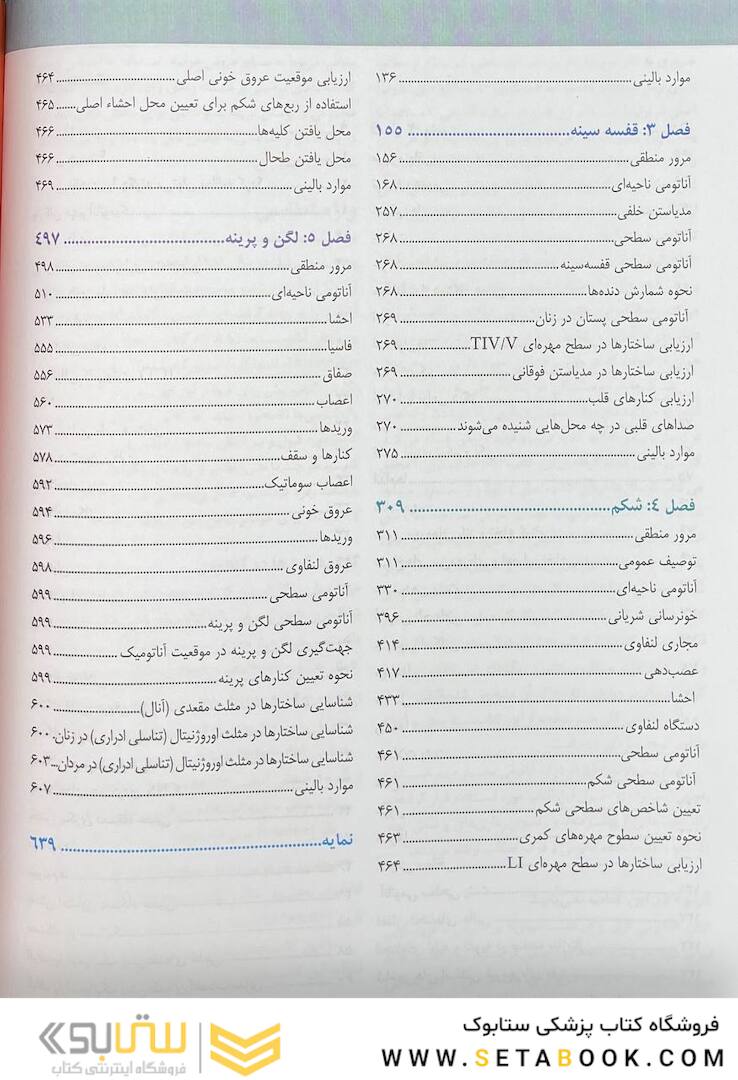 موارد بالینی ۱۳۶
فصل ۳: قفسه سینه ۱۵۵
مرور منطقی ۱۵۶
آناتومی ناحیه‌ای ۱۶۸
مدیاستن خلفی ۲۵۷
آناتومی سطحی ۲۶۸
آناتومی سطحی قفسه‌سینه ۲۶۸
نحوه شمارش دنده‌ها ۲۶۸
آناتومی سطحی پستان در زنان ۲۶۹
ارزیابی ساختارها در سطح مهره‌ای TIV/V ۲۶۹
ارزیابی ساختارها در مدیاستن فوقانی ۲۶۹
ارزیابی کنارهای قلب ۲۷۰
صداهای قلبی در چه محل‌هایی شنیده می‌شوند ۲۷۰
موارد بالینی ۲۷۵
فصل ۴: شکم ۳۰۹
مرور منطقی ۳۱۱
توصیف عمومی ۳۱۱
آناتومی ناحیه‌ای ۳۳۰
خونرسانی شریانی ۳۹۶
مجاری لنفاوی ۴۱۴
عصب‌دهی ۴۱۷
احشا ۴۳۳
دستگاه لنفاوی ۴۵۰
آناتومی سطحی ۴۶۱
آناتومی سطحی شکم ۴۶۱
تعیین شاخص‌های سطحی شکم ۴۶۱
نحوه تعیین سطوح مهره‌های کمری ۴۶۳
ارزیابی ساختارها در سطح مهره‌ای LI ۴۶۴
ارزیابی موقعیت عروق خونی اصلی ۴۶۴
استفاده از ربع‌های شکم برای تعیین محل احشاء اصلی ۴۶۵
محل یافتن کلیه‌ها ۴۶۶
محل یافتن طحال ۴۶۶
موارد بالینی ۴۶۹
فصل ۵: لگن و پرینه ۴۹۷
مرور منطقی ۴۹۸
آناتومی ناحیه‌ای ۵۱۰
احشا ۵۳۳
فاسیا ۵۵۵
صفاق ۵۵۶
اعصاب ۵۶۰
وریدها ۵۷۳
کنارها و سقف ۵۷۸
اعصاب سوماتیک ۵۹۲
عروق خونی ۵۹۴
وریدها ۵۹۶
عروق لنفاوی ۵۹۸
آناتومی سطحی ۵۹۹
آناتومی سطحی لگن و پرینه ۵۹۹
جهت‌گیری لگن و پرینه در موقعیت آناتومیک ۵۹۹
نحوه تعیین کنارهای پرینه ۵۹۹
شناسایی ساختارها در مثلث مقعدی (آنال) ۶۰۰
شناسایی ساختارها در مثلث اوروژنیتال (تناسلی ادراری) در زنان ۶۰۰
شناسایی ساختارها در مثلث اوروژنیتال (تناسلی ادراری) در مردان ۶۰۳
موارد بالینی ۶۰۷
نمایه ۶۳۹
فروشگاه کتاب پزشکی ستابوک
WWW.SETABOOK.COM
ستابوک
فروشگاه اینترنتی کتاب